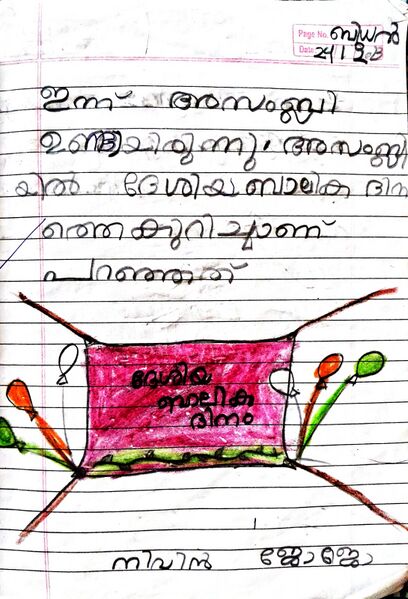 Page No. ബുധൻ
Date 24/1/23
ഇന്ന് അസംബ്ലി
ഉണ്ടായിരുന്നു. അസംബ്ലി
യിൽ ദേശീയ ബാലിക ദിന
ത്തെ കുറിച്ചാണ്
പറഞ്ഞത്
ദേശീയ
ബാലിക
ദിനം
നിവിൻ ജോജോ